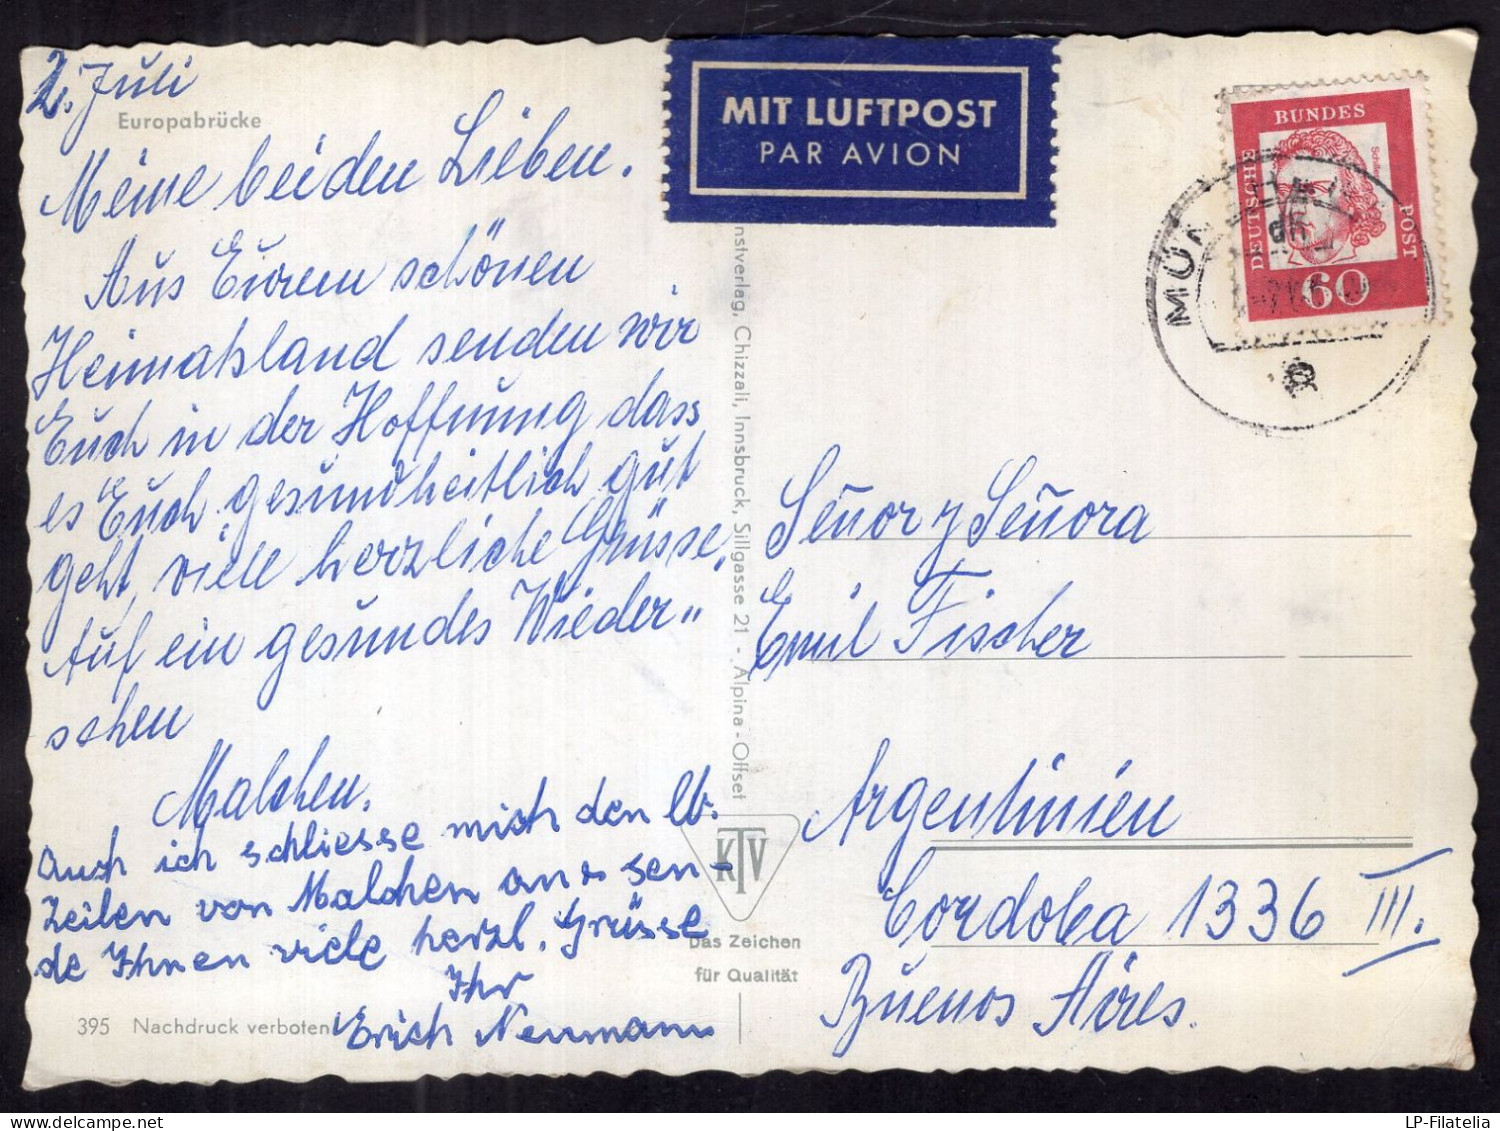 2. Juli
Europabrücke
Meine beiden Lieben.
Aus Eurem schönen
Heimatsland senden wir
Euch in der Hoffnung dass
es Euch gesundheitlich gut
geht, viele herzliche Grüsse.
Auf ein gesundes Wieder"
sehen
Malchen.
Auch ich schliesse mich den lb.
Zeilen von Malchen an & sen-
de Ihnen viele herzl. Grüsse
Ihr
Erich Neumann
395 Nachdruck verboten
MIT LUFTPOST
PAR AVION
nstverlag, Chizzali, Innsbruck, Sillgasse 21 - Alpina-Offset
KTV
Das Zeichen
für Qualität
DEUTSCHE
BUNDES
POST
60
Señor y Señora
Emil Fischer
Argentinien
Cordoba 1336 III.
Buenos Aires.
LP-Filatelia